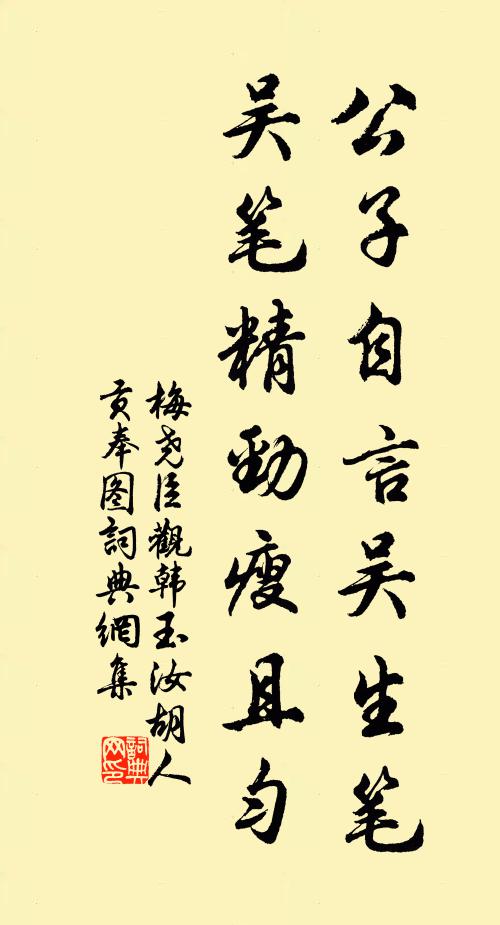 公子自言吴生笔
吴笔精勁瘦且匀
梅尧臣觀韩玉汝胡人
贡奉图詞典網集
詞典
网印